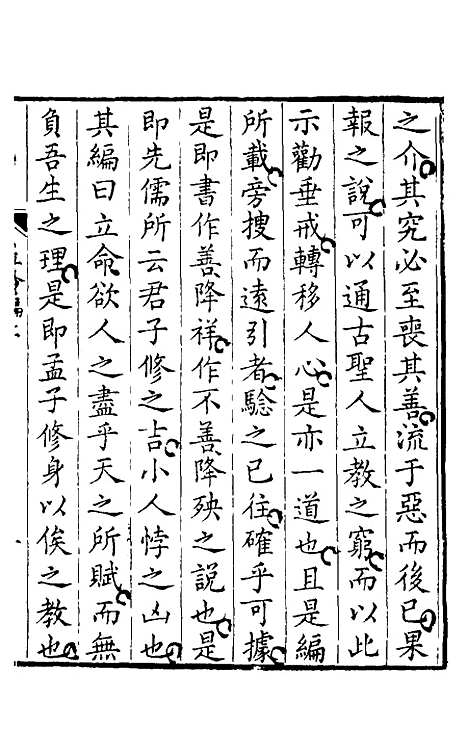 之介其究必至喪其善流于惡而後已果
報之說可以通古聖人立教之窮而以此
示勸垂戒轉移人心是亦一道也且是編
所載旁搜而遠引者驗之已往確乎可據
是即書作善降祥作不善降殃之說也是
即先儒所云君子修之吉小人悖之凶也
其編曰立命欲人之盡乎天之所賦而無
負吾生之理是即孟子修身以俟之教也